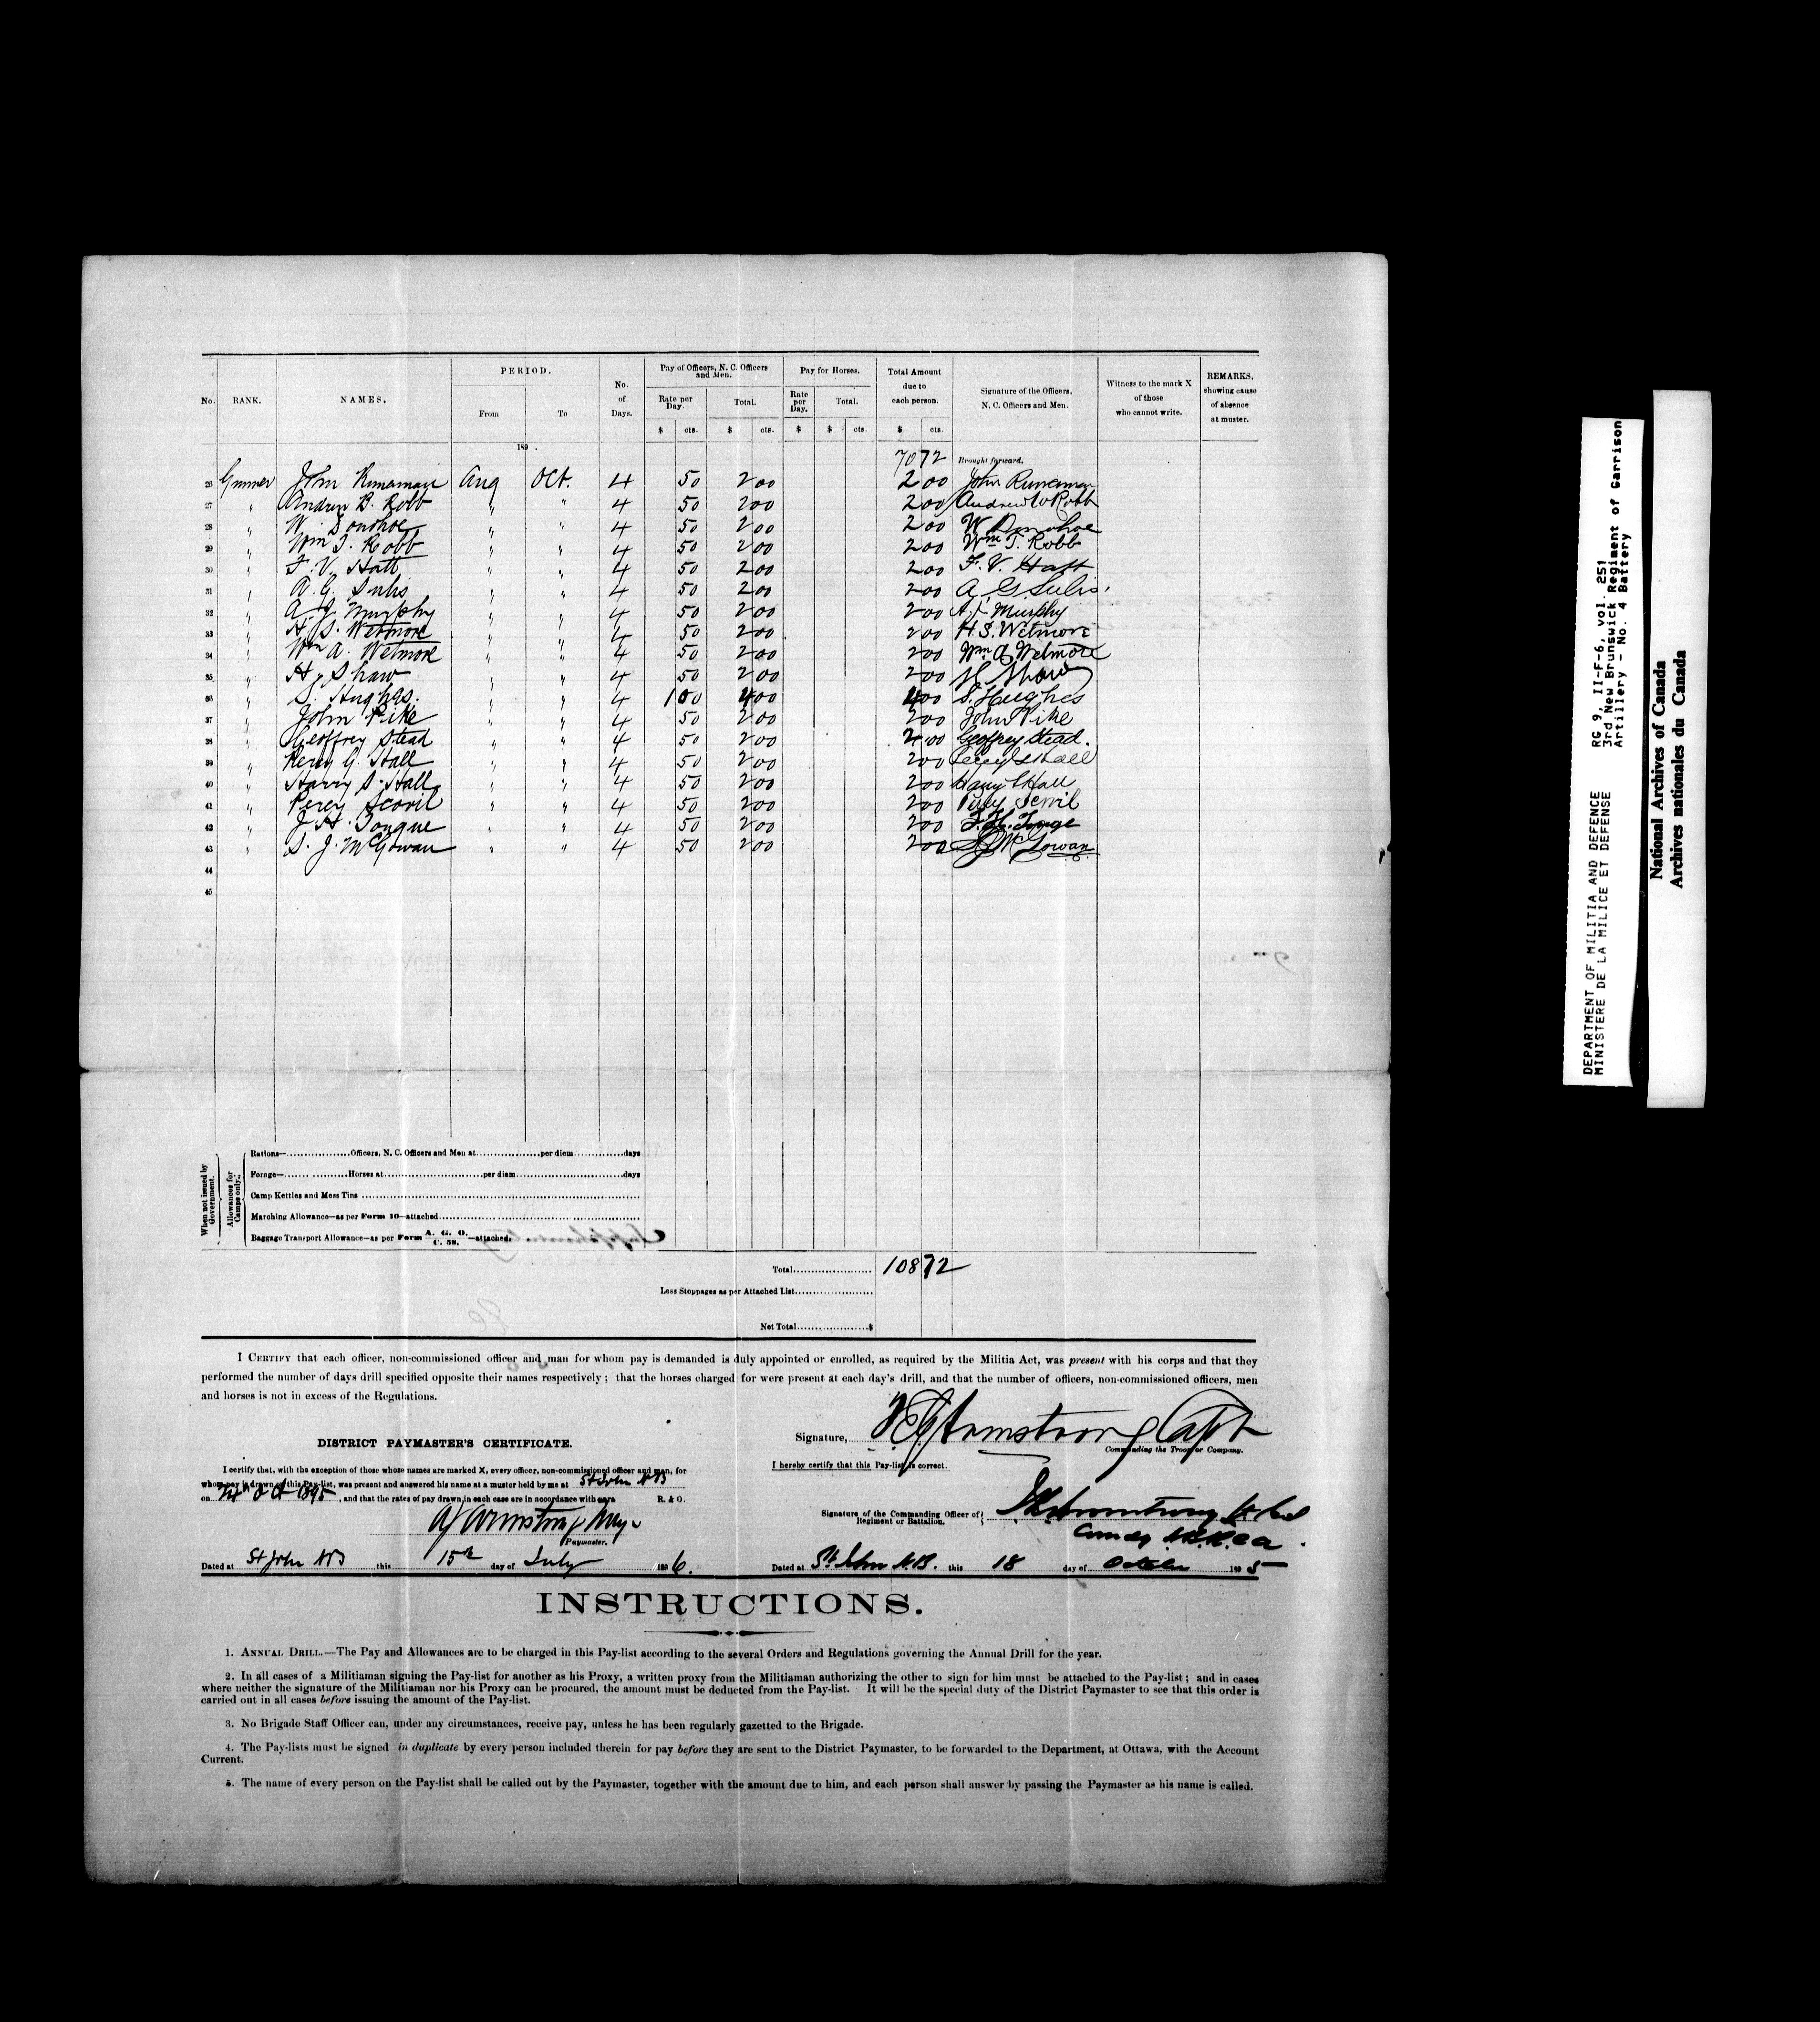 No. RANK. NAMES. PERIOD. From To No. of Days. Pay of Officers, N. C. Officers and Men. Rate per Day. $ cts. Total. $ cts. Pay for Horses. Rate per Day. $ Total. $ cts. Total Amount due to each person. $ cts. Signature of the Officers, N. C. Officers and Men. Witness to the mark X of those who cannot write. REMARKS, showing cause of absence at muster.
189 .
70 72 Brought forward.
26 Gunner John Runciman Aug Oct. 4 50 2 00 2 00 John Runciman
27 " Andrew B. Robb " " 4 50 2 00 2 00 Andrew Robb
28 " W. Donohoe " " 4 50 2 00 2 00 W Donohoe
29 " Wm T. Robb " " 4 50 2 00 2 00 Wm T. Robb
30 " F. V. Hatt " " 4 50 2 00 2 00 F. V. Hatt
31 " A. G. Sulis " " 4 50 2 00 2 00 A G Sulis
32 " A. J. Murphy " " 4 50 2 00 2 00 A. J. Murphy
33 " H. S. Wetmore " " 4 50 2 00 2 00 H. S. Wetmore
34 " Wm A. Wetmore " " 4 50 2 00 2 00 Wm A Wetmore
35 " H. Shaw " " 4 50 2 00 2 00 H Shaw
36 " S. Hughes. " " 4 1 00 4 00 4 00 S. Hughes
37 " John Pike " " 4 50 2 00 2 00 John Pike
38 " Geoffrey Stead " " 4 50 2 00 2 00 Geoffrey Stead.
39 " Percy G. Hall " " 4 50 2 00 2 00 Percy G Hall
40 " Harry S. Hall " " 4 50 2 00 2 00 Harry S Hall
41 " Percy Scovil " " 4 50 2 00 2 00 Percy Scovil
42 " J. H. Tongue " " 4 50 2 00 2 00 F. H. Tonge
43 " S. J. McGowan " " 4 50 2 00 2 00 S J McGowan
44
45
When not issued by Government.
Allowances for Camps only.
Rations—..................Officers, N. C. Officers and Men at..................per diem..................days
Forage—..................Horses at..................per diem..................days
Camp Kettles and Mess Tins ..................
Marching Allowance—as per Form 10—attached..................
Baggage Transport Allowance—as per Form A. G. O. C. 58. —attached.
Total.................. 108 72
Less Stoppages as per Attached List..................
Net Total..................$
I CERTIFY that each officer, non-commissioned officer and man for whom pay is demanded is duly appointed or enrolled, as required by the Militia Act, was present with his corps and that they
performed the number of days drill specified opposite their names respectively ; that the horses charged for were present at each day's drill, and that the number of officers, non-commissioned officers, men
and horses is not in excess of the Regulations.
Signature, Armstrong Capt
Commanding the Troop or Company.
DISTRICT PAYMASTER'S CERTIFICATE.
I hereby certify that this Pay-list is correct.
I certify that, with the exception of those whose names are marked X, every officer, non-commissioned officer and man, for
whom pay is drawn on this Pay-list, was present and answered his name at a muster held by me at St John NB
on 1895, and that the rates of pay drawn in each case are in accordance with para R. & O.
Signature of the Commanding Officer of Regiment or Battalion. Armstrong Lt Col
Armstrong
Paymaster.
Dated at St John NB this 15th day of July 1896.
Dated at St John N.B. this 18 day of October 1895
INSTRUCTIONS.
1. ANNUAL DRILL.—The Pay and Allowances are to be charged in this Pay-list according to the several Orders and Regulations governing the Annual Drill for the year.
2. In all cases of a Militiaman signing the Pay-list for another as his Proxy, a written proxy from the Militiaman authorizing the other to sign for him must be attached to the Pay-list ; and in cases
where neither the signature of the Militiaman nor his Proxy can be procured, the amount must be deducted from the Pay-list. It will be the special duty of the District Paymaster to see that this order is
carried out in all cases before issuing the amount of the Pay-list.
3. No Brigade Staff Officer can, under any circumstances, receive pay, unless he has been regularly gazetted to the Brigade.
4. The Pay-lists must be signed in duplicate by every person included therein for pay before they are sent to the District Paymaster, to be forwarded to the Department, at Ottawa, with the Account
Current.
5. The name of every person on the Pay-list shall be called out by the Paymaster, together with the amount due to him, and each person shall answer by passing the Paymaster as his name is called.
DEPARTMENT OF MILITIA AND DEFENCE
MINISTERE DE LA MILICE ET DEFENSE
RG 9, II-F-6, vol. 251
3rd New Brunswick Regiment of Garrison
Artillery - No. 4 Battery
National Archives of Canada
Archives nationales du Canada